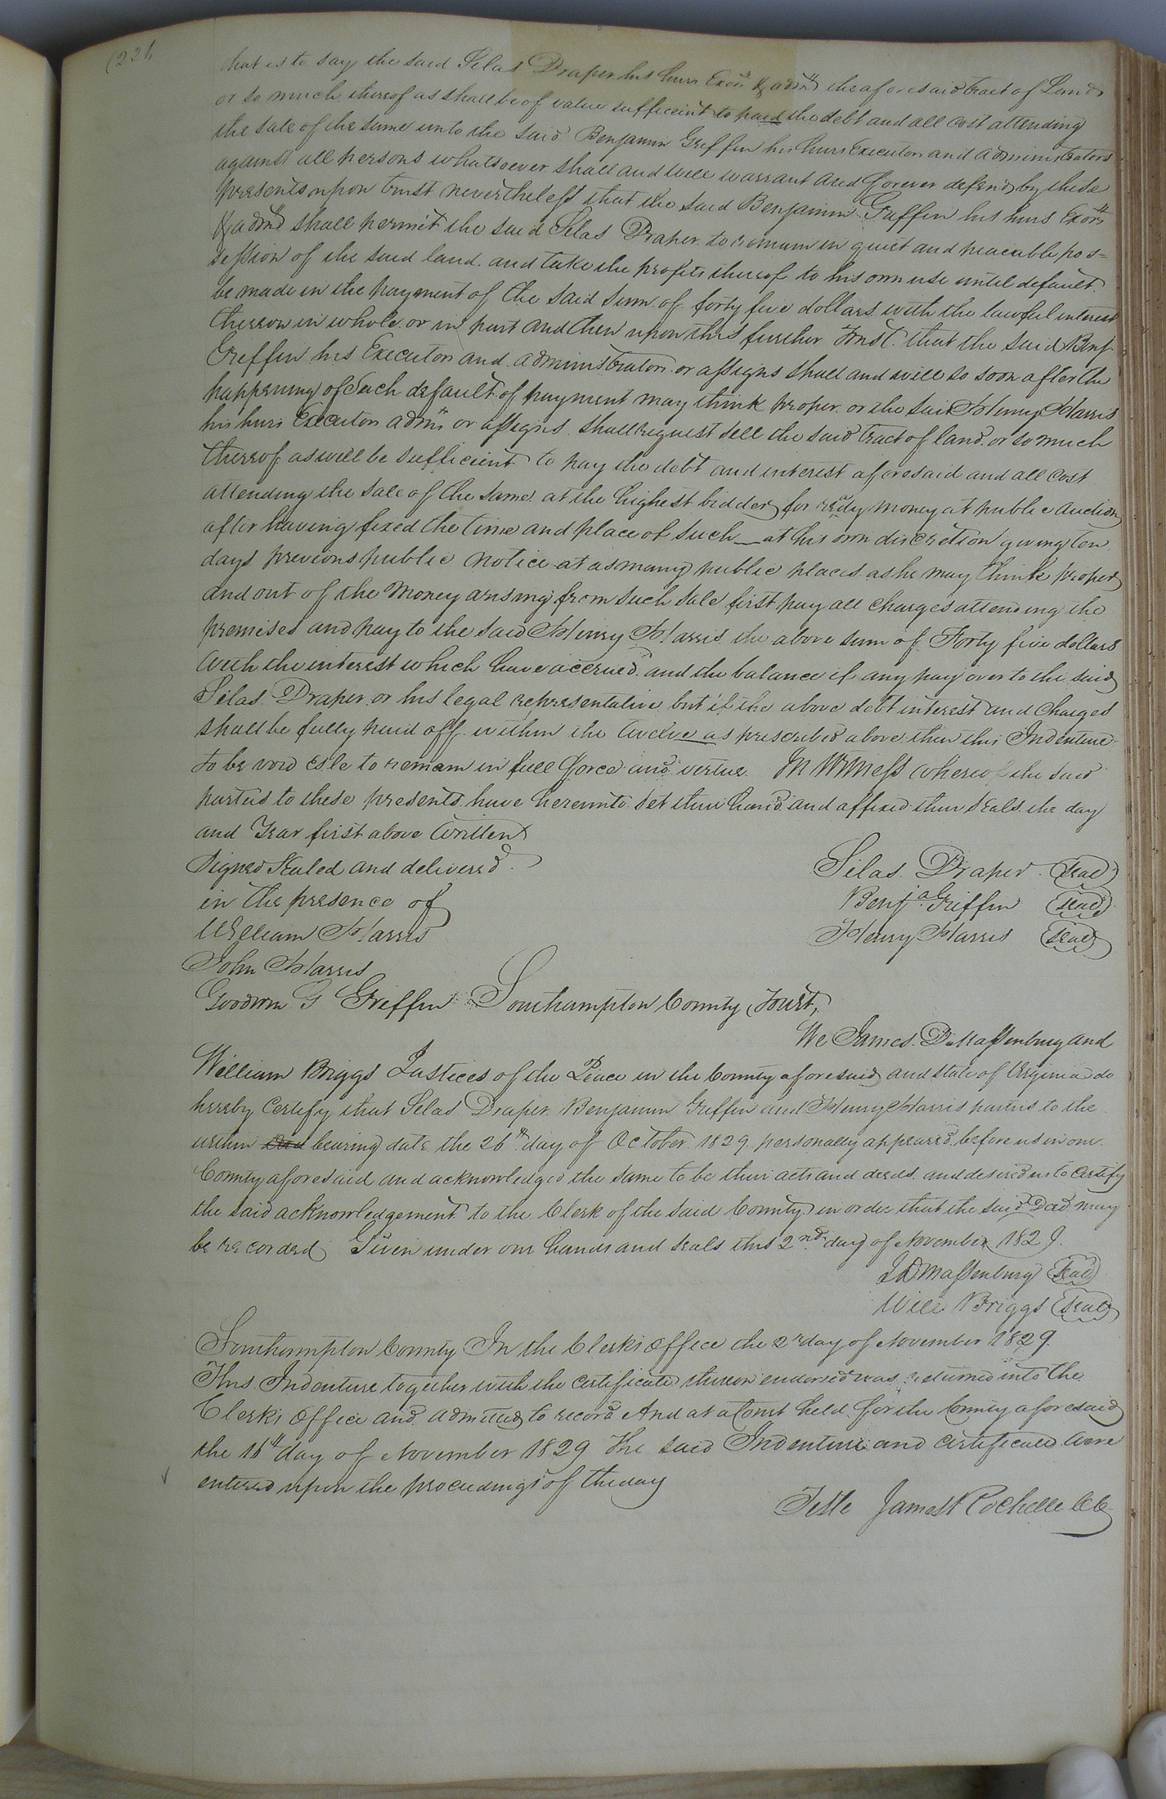 that is to say the said Silas Draper his heirs Exors & admrs the aforesaid tract of Land
or so much thereof as shall be of value sufficient to paid the debt and all cost attending
the sale of the same unto the said Benjamin Griffin his heirs Executors and administrators
against all persons whatsoever shall and will warrant and forever defend by these
presents upon trust nevertheless that the said Benjamin Griffin his heirs Exors
& admrs shall permit the said Silas Draper to remain in quiet and peaceable pos=
session of the said land and take the profits thereof to his own use until default
be made in the payment of the said sum of forty five dollars with the lawful interest
thereon in whole or in part and then upon this further Trust that the said Benj.
Griffin his Executors and administrators or assigns shall and will so soon after the
happening of such default of payment may think proper or the said Henry Harris
his heirs Executors admrs or assigns shall request sell the said tract of land or so much
thereof as will be sufficient to pay the debt and interest aforesaid and all cost
attending the sale of the same at the highest bidder for ready money at public auction
after having fixed the time and place of such at his own discretion giving ten
days previous public notice at as many public places as he may think proper
and out of the Money arising from such sale first pay all charges attending the
premises and pay to the said Henry Harris the above sum of Forty five dollars
with the interest which have accrued and the balance if any pay over to the said
Silas Draper or his legal representative but if the above debt interest and charges
shall be fully paid off within the twelve as prescribed above then this Indenture
to be void else to remain in full force and virtue In Witness whereof the said
parties to these presents have hereunto set their hands and affixed their seals the day
and Year first above Written
Signed Sealed and delivered
in the presence of
William Harris
John Harris
Goodwin G Griffin
Silas Draper Seal
Benja Griffin Seal
Henry Harris Seal
Southampton County Court,
We James D Massenburg and
William Briggs Justices of the Peace in the County aforesaid and State of Virginia do
hereby certify that Silas Draper Benjamin Griffin and Henry Harris parties to the
within bearing date the 26th day of October 1829 personally appeared before us in our
County aforesaid and acknowledged the same to be their acts and deeds and desired us to certify
the said acknowledgement to the Clerk of the said County in order that the said Deed may
be recorded Given under our hands and seals this 2nd day of November 1829.
J D Massenburg Seal
Will Briggs Seal
Southampton County In the Clerks Office the 2d day of November 1829.
This Indenture together with the certificate thereon endorsed was returned into the
Clerks Office and admitted to record And at a Court held for the County aforesaid
the 16th day of November 1829 The said Indenture and certificate were
entered upon the proceedings of the day
Teste James Rochelle CC